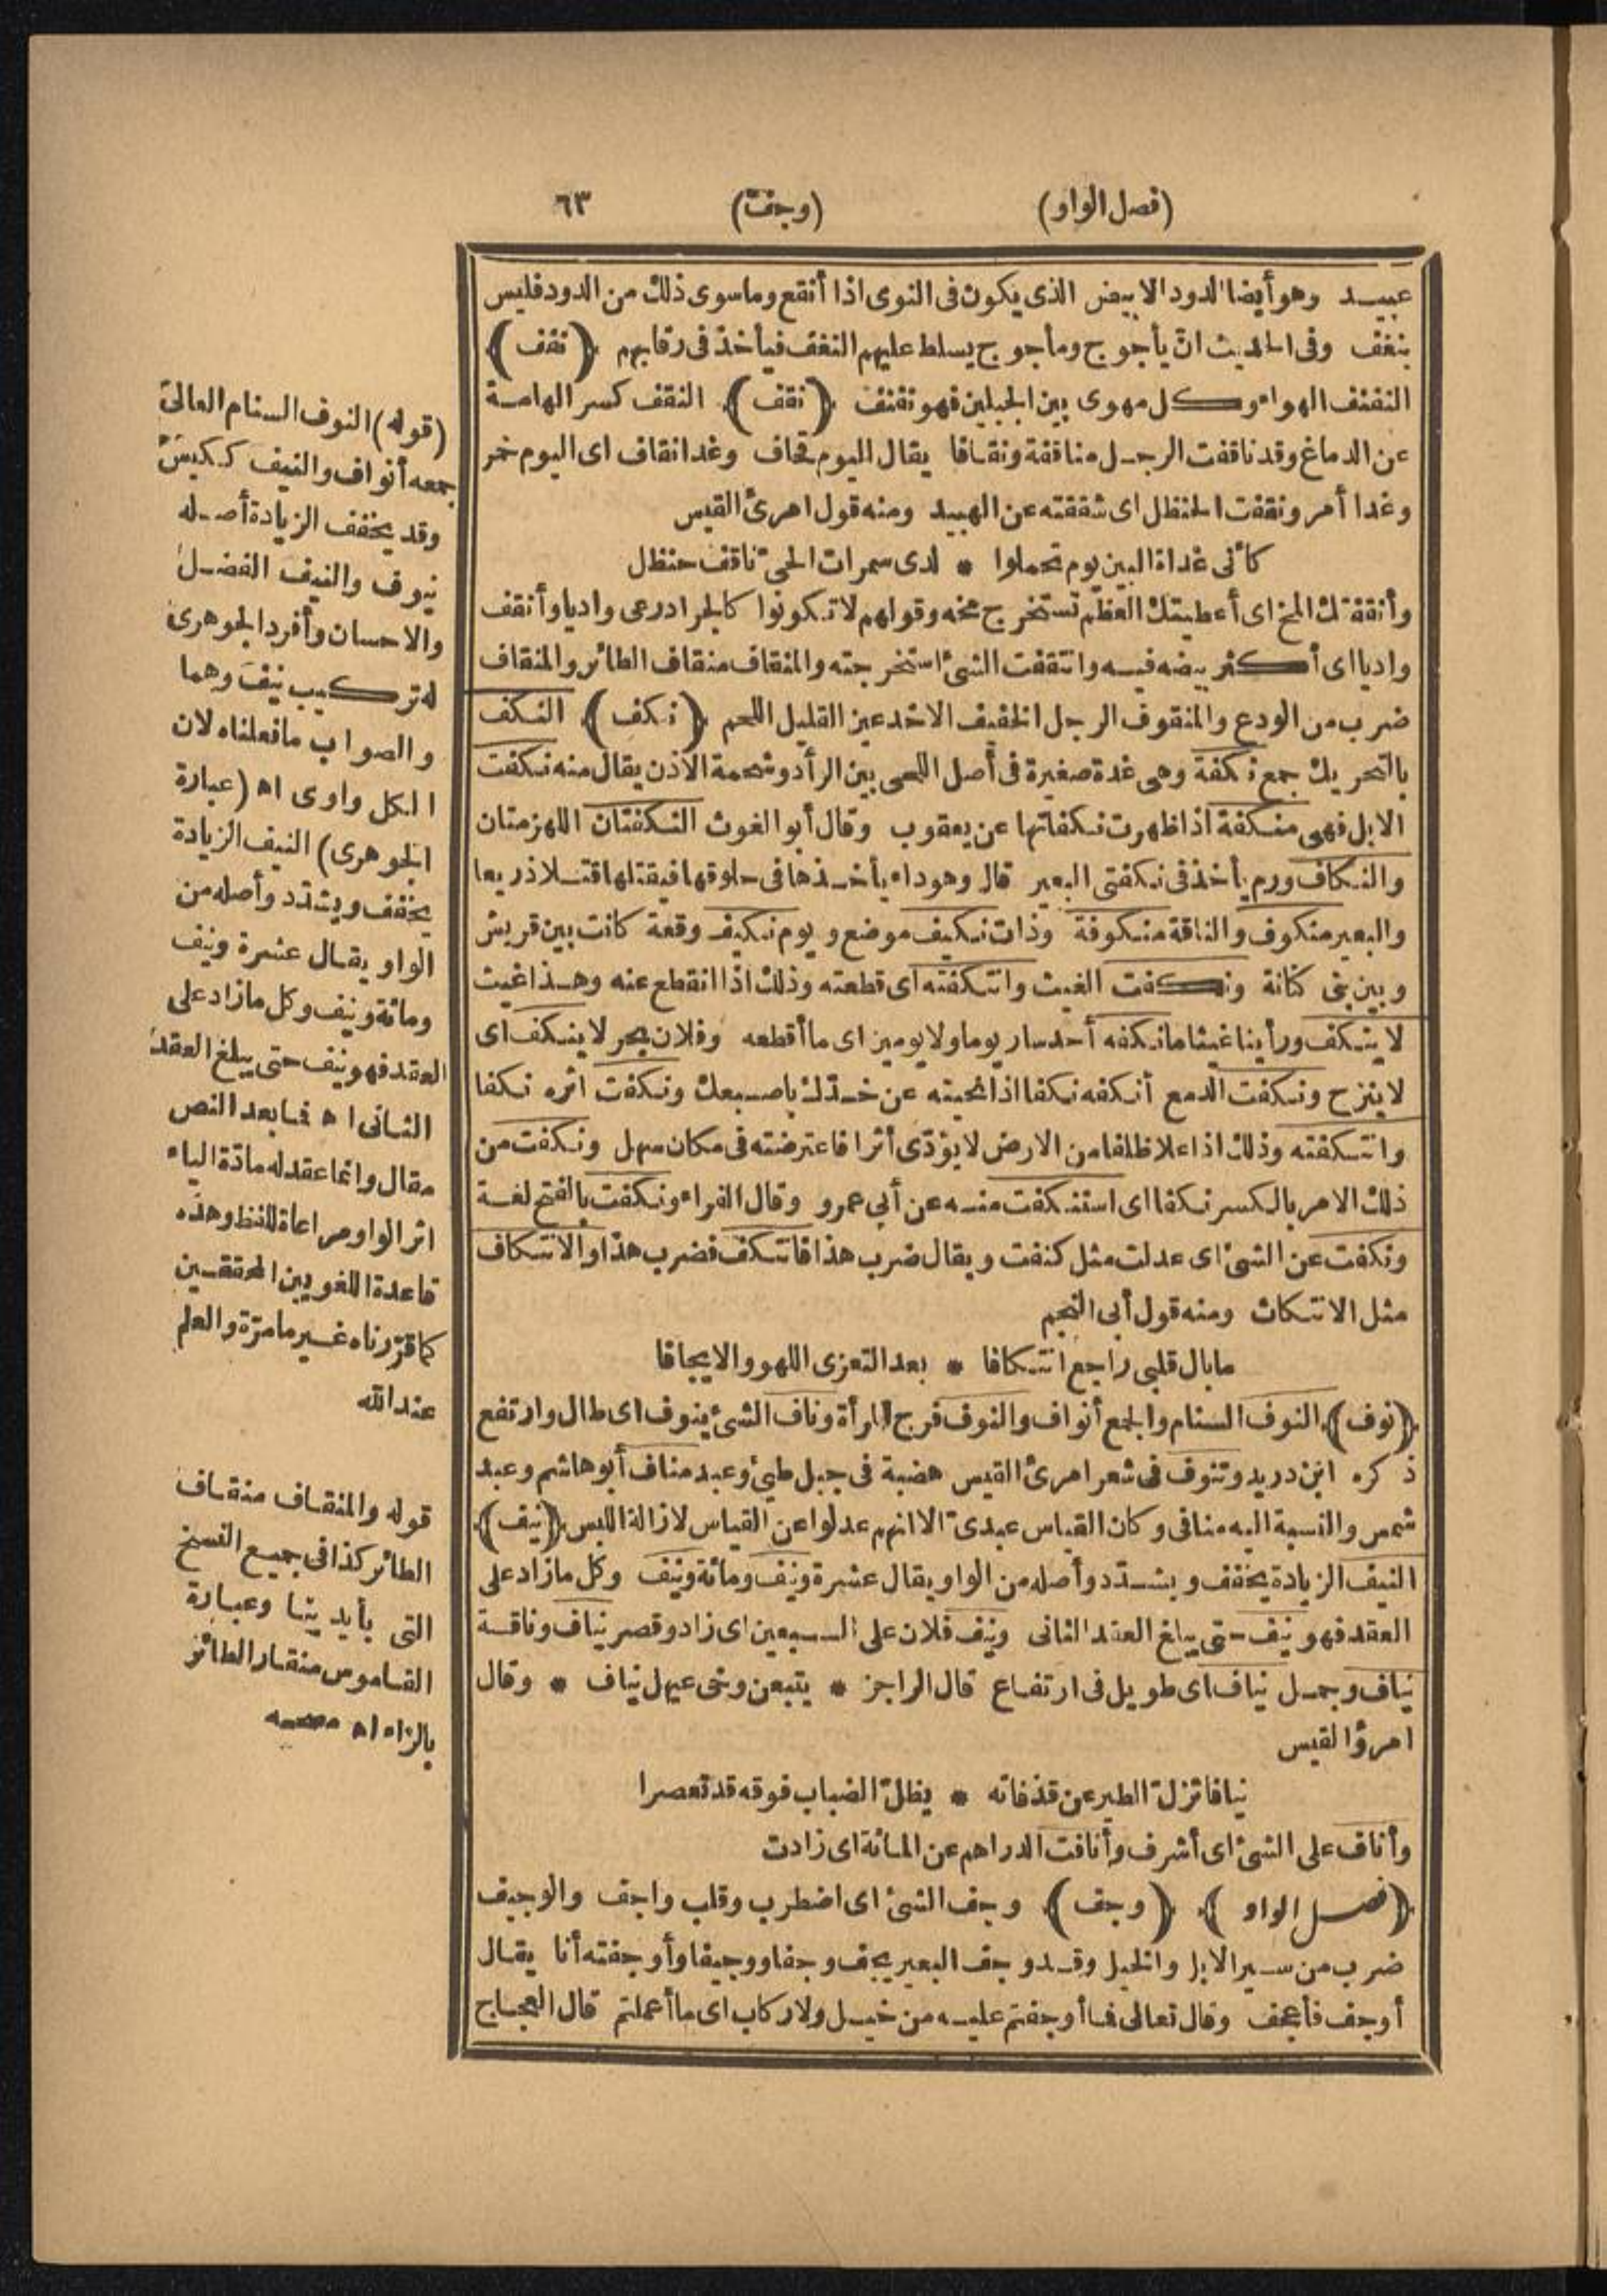 (فصل الواو) (وجف) ٦٣
عبيد وهو أيضا الدود الابيض الذى يكون فى النوى اذا أنقع وما سوى ذلك من الدود فليس
بنغف وفى الحديث انّ يأجوج ومأجوج يسلط عليهم النغف فيأخذ فى رقابهم (نفف)
النفنف الهواء وكل مهوى بين الجبلين فهو نفنف (نقف) النقف كسر الهامة
عن الدماغ وقد ناقفت الرجل مناقفة ونقافا يقال اليوم قحاف وغدا نقاف اى اليوم خمر
وغدا أمر ونقفت الحنظل اى شققته عن الهبيد ومنه قول امرئ القيس
كأنى غداة البين يوم تحملوا * لدى سمرات الحىّ ناقف حنظل
وأنقفتك المخ اى أعطيتك العظم تستخرج مخه وقولهم لا تكونوا كالجراد رعى واديا وأنقف
واديا اى أكثر بيضه فيه وانتقفت الشئ استخرجته والمنقاف منقاف الطائر والمنقاف
ضرب من الودع والمنقوف الرجل الخفيف الاخدعين القليل اللحم (نكف) النكف
بالتحريك جمع نكفة وهى غدة صغيرة فى أصل اللحى بين الرأد وشحمة الاذن يقال منه نكفت
الابل فهى منكفة اذا ظهرت نكفاتها عن يعقوب وقال أبو الغوث النكفتان اللهزمتان
والنكاف ورم يأخذ فى نكفتى البعير قال وهو داء يأخذها فى حلوقها فيقتلها قتلا ذريعا
والبعير منكوف والناقة منكوفة وذات نكيف موضع ويوم نكيف وقعة كانت بين قريش
وبين بنى كنانة ونكفت الغيث وانتكفته اى قطعته وذلك اذا انقطع عنه وهذا غيث
لا ينكف ورأينا غيثا ما نكفه أحد سار يوما ولا يومين اى ما أقطعه وفلان بحر لا ينكف اى
لا ينزح ونكفت الدمع أنكفه نكفا اذا نحيته عن خدّك باصبعك ونكفت اثره نكفا
وانتكفته وذلك اذا علا ظلفا من الارض لا يؤدّى أثرا فاعترضته فى مكان سهل ونكفت من
ذلك الامر بالكسر نكفا اى استنكفت منه عن أبى عمرو وقال الفراء ونكفت بالفتح لغة
ونكفت عن الشئ اى عدلت مثل كنفت ويقال ضرب هذا فانتكف فضرب هذا والانتكاف
مثل الانتكاث ومنه قول أبى النجم
ما بال قلبى راجع انتكافا * بعد التعزى اللهو والايجافا
(نوف) النوف السنام والجمع أنواف والنوف فرج المرأة وناف الشئ ينوف اى طال وارتفع
ذكره ابن دريد وتنوف فى شعر امرئ القيس هضبة فى جبل طيئ وعبد مناف أبو هاشم وعبد
شمس والنسبة اليه منافى وكان القياس عبدىّ الا انهم عدلوا عن القياس لازالة اللبس (نيف)
النيف الزيادة يخفف ويشدّد وأصله من الواو يقال عشرة ونيف ومائة ونيف وكل ما زاد على
العقد فهو نيف حتى يبلغ العقد الثانى ونيف فلان على السبعين اى زاد وقصر نياف وناقة
نياف وجمل نياف اى طويل فى ارتفاع قال الراجز * يتبعن وخى عيهل نياف * وقال
امرؤ القيس
نيافا تزلّ الطير عن قذفاته * يظلّ الضباب فوقه قد تعصرا
وأناف على الشئ اى أشرف وأنافت الدراهم عن المائة اى زادت
(فصل الواو) (وجف) وجف الشئ اى اضطرب وقلب واجف والوجيف
ضرب من سير الابل والخيل وقد وجف البعير يجف وجفا ووجيفا وأوجفته أنا يقال
أوجف فأعجف وقال تعالى فما أوجفتم عليه من خيل ولا ركاب اى ما أعملتم قال العجاج
(قوله) النوف السنام العالى
جمعه أنواف والنيف ككيس
وقد يخفف الزيادة أصله
نيوف والنيف الفضل
والاحسان وأفرد الجوهرى
له تركيب نيف وهما
والصواب ما فعلناه لان
الكل واوى اه (عبارة
الجوهرى) النيف الزيادة
يخفف ويشدّد وأصله من
الواو يقال عشرة ونيف
ومائة ونيف وكل ما زاد على
العقد فهو نيف حتى يبلغ العقد
الثانى اه فما بعد النص
مقال وانما عقد له مادّة الياء
اثر الواو مراعاة للفظ وهذه
قاعدة اللغويين المحققين
كما قرّرناه غير ما مرّة والعلم
عند الله
قوله والمنقاف منقاف
الطائر كذا فى جميع النسخ
التى بأيدينا وعبارة
القاموس منقار الطائر
بالراء اه مصححه